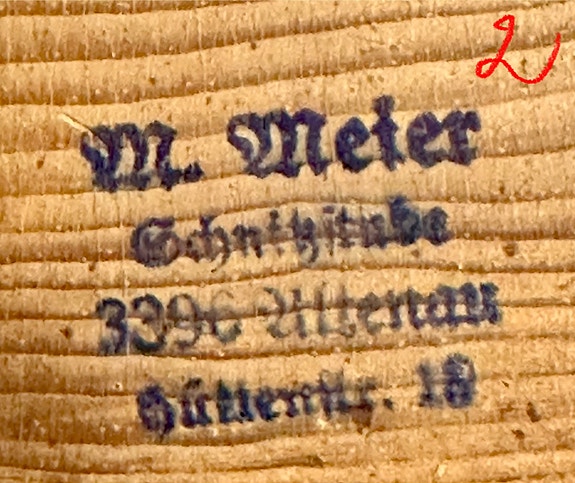 2
M. Meier
Schnitzstube
3396 Altenau
Hüttenstr. 18